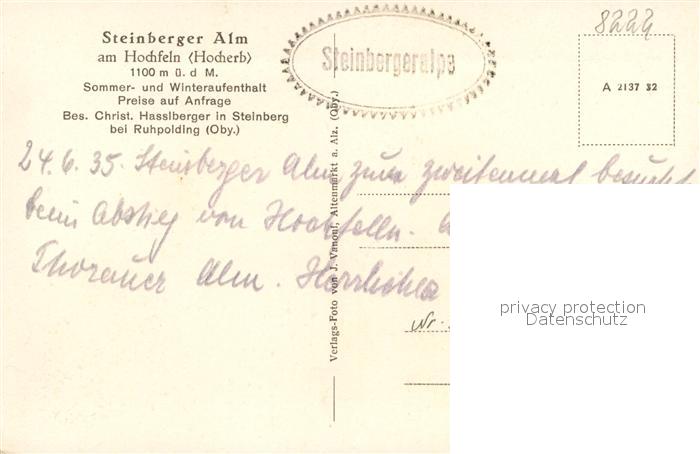 Steinberger Alm
am Hochfeln (Hocherb)
1100 m ü. d M.
Sommer- und Winteraufenthalt
Preise auf Anfrage
Bes. Christ. Hasslberger in Steinberg
bei Ruhpolding (Oby.)
Steinbergeralpe
8222
A 2137 32
24.6.35. Steinberger Alm zum zweitenmal besucht
beim Abstieg von Hochfelln.
Thorauer Alm.
Nr.
Verlags-Foto von J. Vanouf, Altenmarkt a. Alz. (Oby.)
privacy protection
Datenschutz